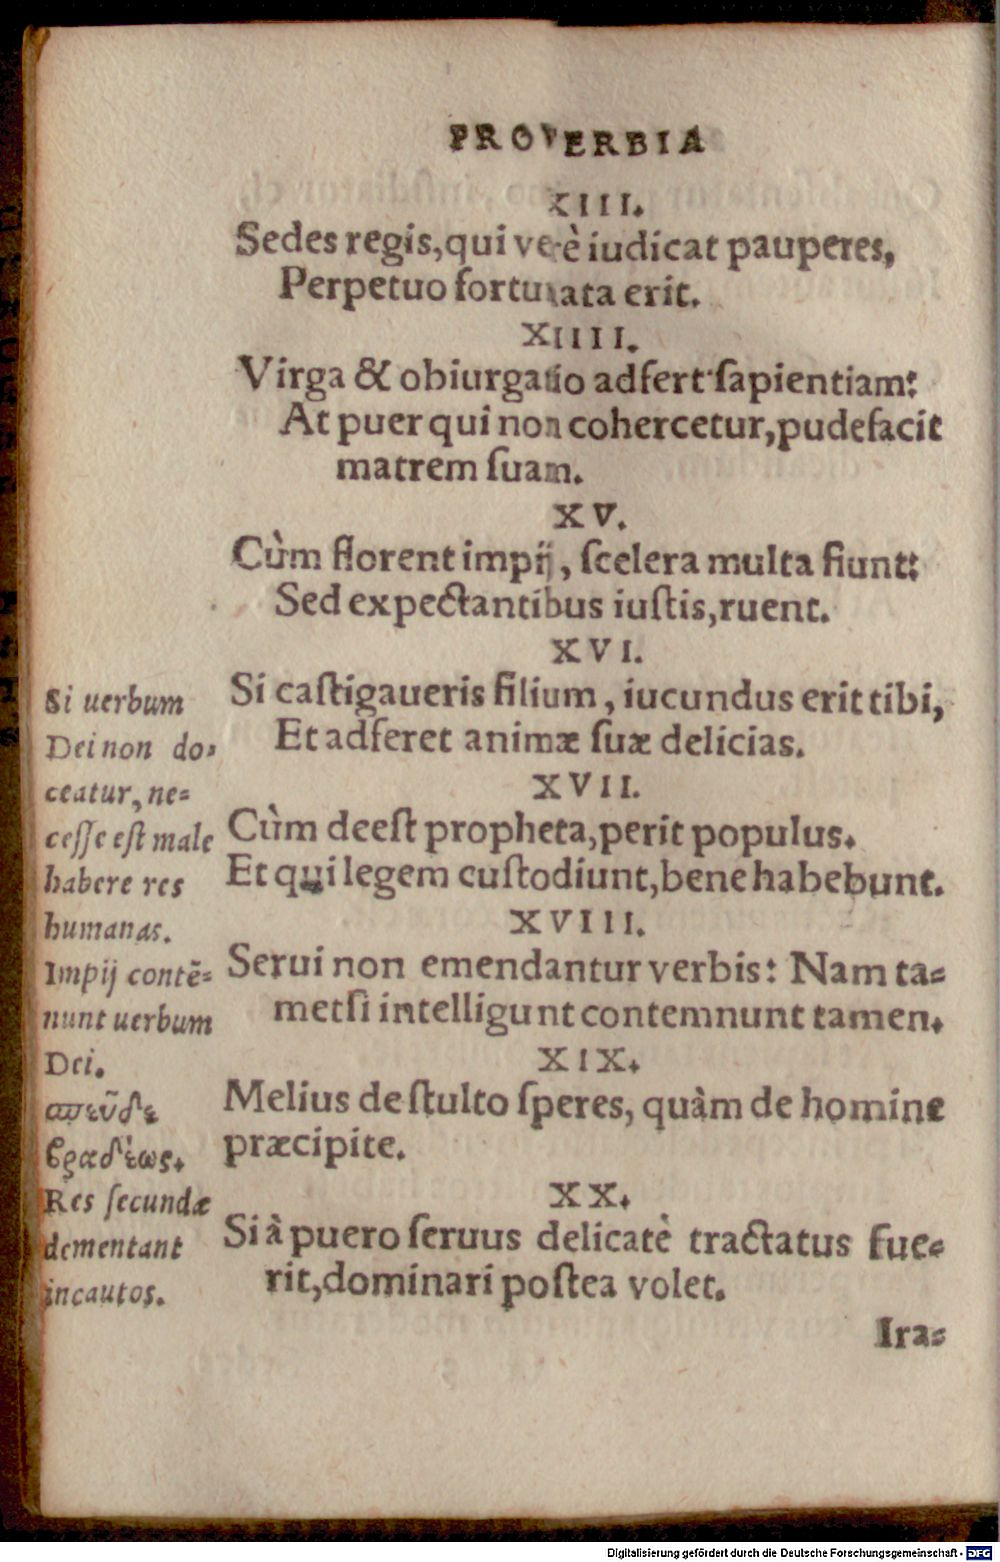 PROVERBIA
XIII.
Sedes regis, qui verè iudicat pauperes,
Perpetuo fortunata erit.
XIIII.
Virga & obiurgatio adfert sapientiam:
At puer qui non cohercetur, pudefacit
matrem suam.
XV.
Cùm florent impij, scelera multa fiunt:
Sed expectantibus iustis, ruent.
XVI.
Si castigaueris filium, iucundus erit tibi,
Et adferet animæ suæ delicias.
XVII.
Cùm deest propheta, perit populus.
Et qui legem custodiunt, bene habebunt.
XVIII.
Serui non emendantur verbis: Nam ta-
metsi intelligunt contemnunt tamen.
XIX.
Melius de stulto speres, quàm de homine
præcipite.
XX.
Si à puero seruus delicatè tractatus fue-
rit, dominari postea volet.
Ira-
Si uerbum
Dei non do-
ceatur, ne-
cesse est male
habere res
humanas.
Impij contē-
nunt uerbum
Dei.
σπεῦδε
βραδέως.
Res secundæ
dementant
incautos.
Digitalisierung gefördert durch die Deutsche Forschungsgemeinschaft - DFG